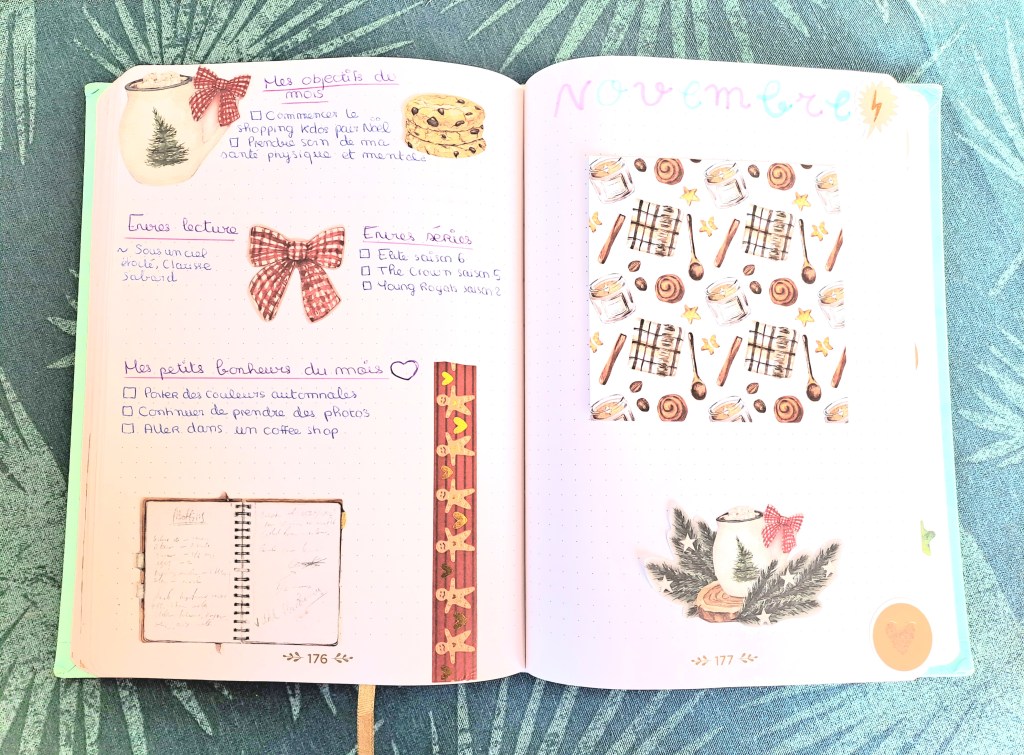 Mes objectifs du
mois
Commencer le
shopping Kdos pour Noël
Prendre soin de ma
santé physique et mentale
Envies lecture
~ Sous un ciel
étoilé, Clarisse
Sabard
Envies séries
Elite saison 6
The Crown saison 5
Young Royals saison 2
Mes petits bonheurs du mois
Porter des couleurs automnales
Continuer de prendre des photos
Aller dans un coffee shop
176
Novembre
177